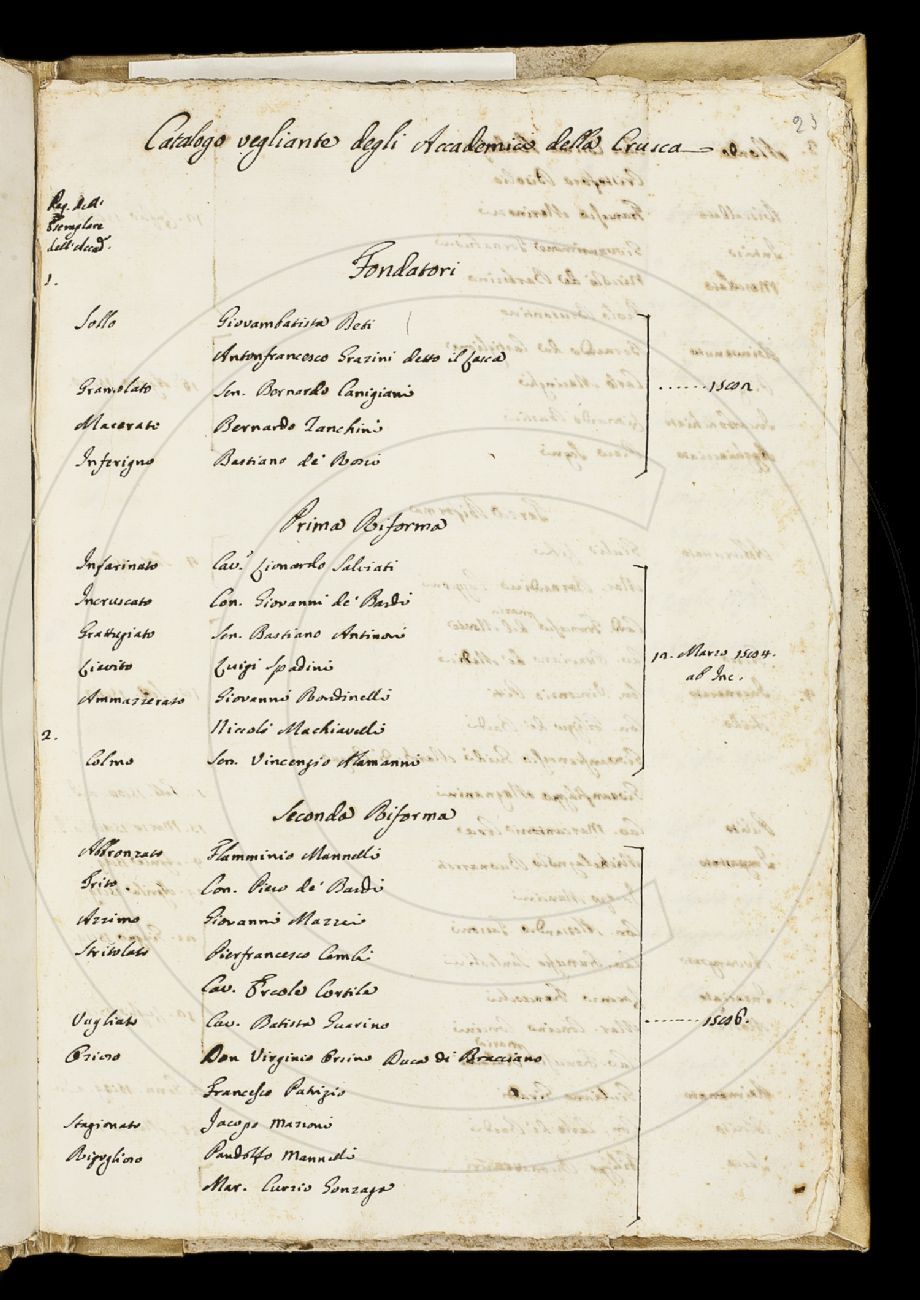 23
Catalogo vegliante degli Accademici della Crusca
Pag. dell'
Esemplare
dell'Accad.
1.
Fondatori
Sollo Giovambatista Deti
Antonfrancesco Grazini detto il Lasca
Gramolato Sen. Bernardo Canigiani
Macerato Bernardo Zanchini
Inferigno Bastiano de' Rossi
1582
Prima Riforma
Infarinato Cav.r Lionardo Salviati
Incruscato Con. Giovanni de' Bardi
Grattugiato Sen. Bastiano Antinori
Lievito Luigi Spadini
12. Marzo 1584.
ab Inc.
Ammazzerato Giovanni Rondinelli
Niccolò Machiavelli
2.
Colmo Sen. Vincenzio Alamanni
Seconda Riforma
Abbronzato Flamminio Mannelli
Trito. Con. Piero de' Bardi
Azzimo Giovanni Mazzei
Stritolato Pierfrancesco Cambi
Cav. Ercole Cortile
Vagliato Cav. Batista Guarino
1586.
Don Virginio Orsino Duca di Bracciano
Francesco Patrizio
Stagionato Jacopo Mazzoni
Rigoglioso Pandolfo Mannelli
Mar. Curzio Gonzaga